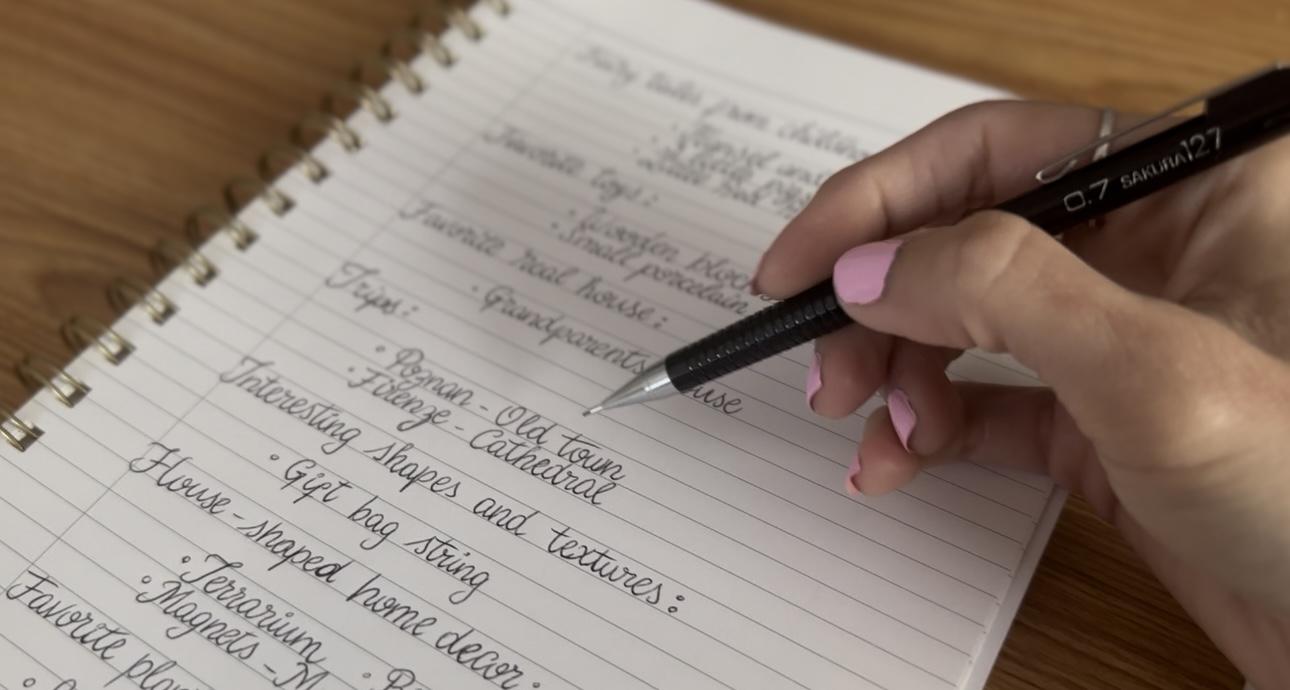 Fairy tales from childhood
• Hansel and
• Little
Favorite toys:
• Wooden blocks
• Small porcelain
Favorite real house:
• Grandparents
use
Trips:
• Poznan - Old town
• Firenze - Cathedral
Interesting shapes and textures:
• Gift bag string
House-shaped home decor:
• Terrarium
• Magnets - M
Favorite plan
0.7 SAKURA 127